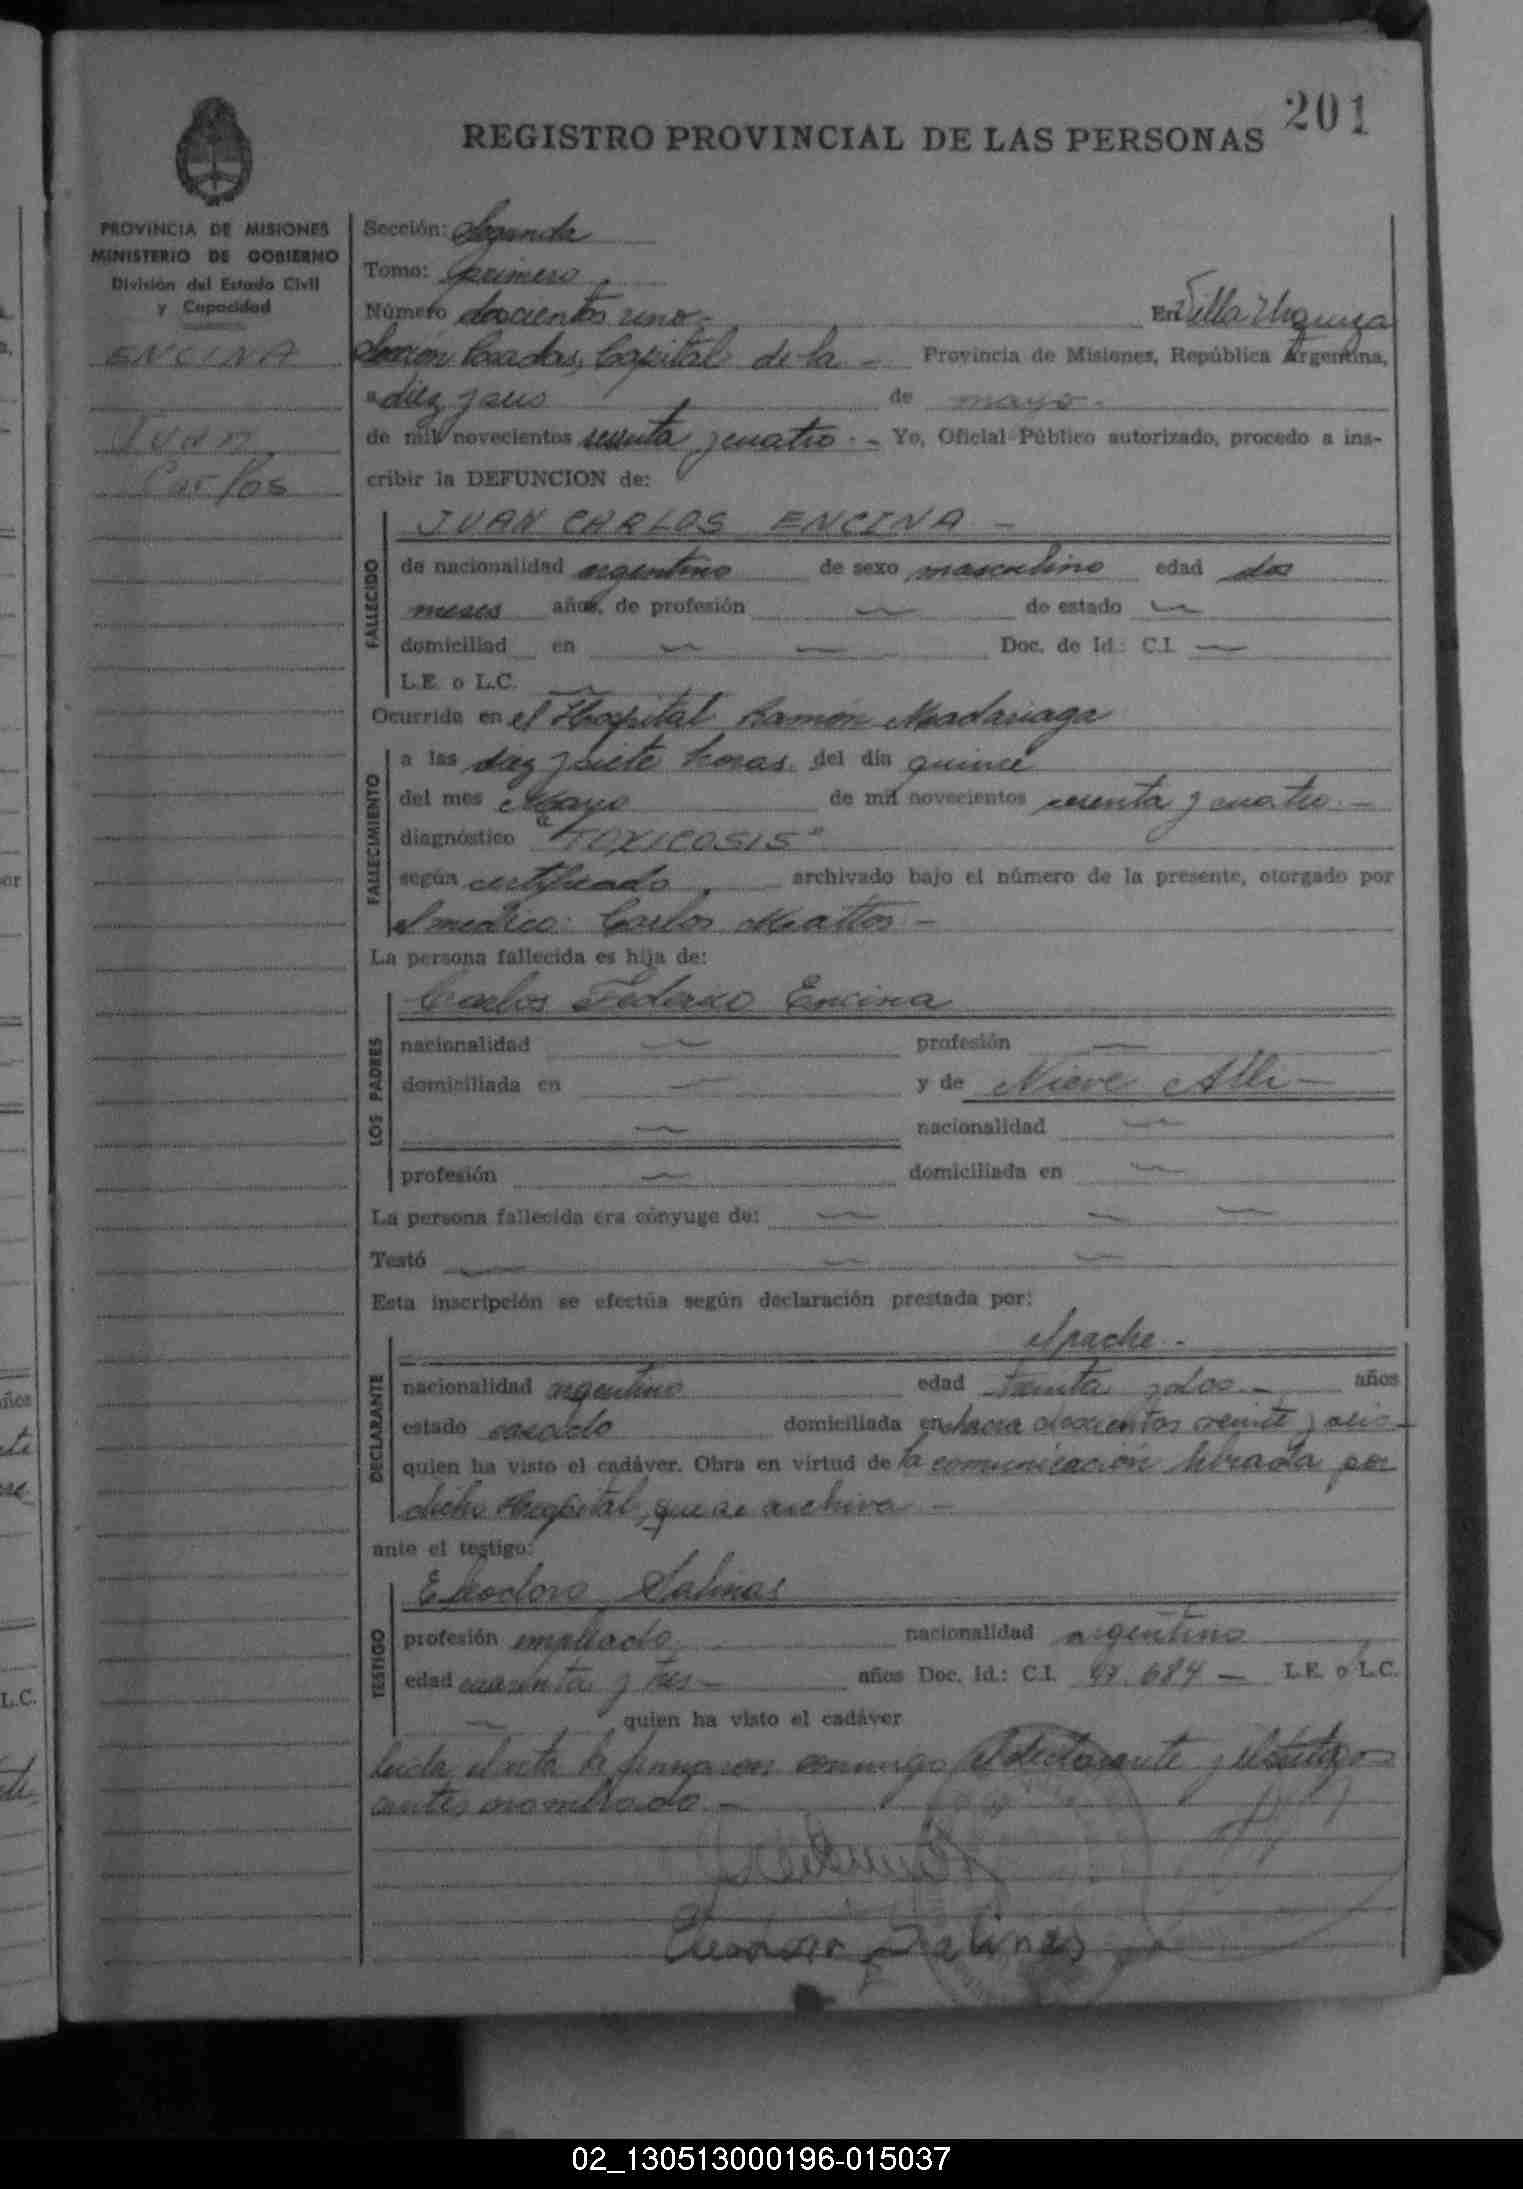 201
REGISTRO PROVINCIAL DE LAS PERSONAS
PROVINCIA DE MISIONES
MINISTERIO DE GOBIERNO
División del Estado Civil
y Capacidad
ENCINA
Juan
Carlos
Sección: Segunda
Tomo: primero
Número doscientos uno.- En Villa Urquiza
Sección Posadas, Capital de la - Provincia de Misiones, República Argentina,
a diez y seis de mayo.-
de mil novecientos sesenta y cuatro.- Yo, Oficial Público autorizado, procedo a ins-
cribir la DEFUNCION de:
FALLECIDO
JUAN CARLOS ENCINA -
de nacionalidad argentino de sexo masculino edad dos
meses años, de profesión — de estado —
domiciliad en — — Doc. de Id.: C.I. —
L.E. o L.C. —
Ocurrida en el Hospital Ramón Madariaga
FALLECIMIENTO
a las diez y siete horas del día quince
del mes Mayo de mil novecientos sesenta y cuatro.-
diagnóstico "TOXICOSIS"
según certificado archivado bajo el número de la presente, otorgado por
el medico: Carlos Mattos -
La persona fallecida es hija de:
LOS PADRES
Carlos Federico Encina
nacionalidad — profesión —
domiciliada en — y de Nieve -
— nacionalidad —
profesión — domiciliada en —
La persona fallecida era cónyuge de: — — —
Testó — — —
Esta inscripción se efectúa según declaración prestada por:
DECLARANTE
el padre.-
nacionalidad argentino edad treinta y dos - años
estado casado domiciliada en chacra doscientos veinte y seis -
quien ha visto el cadáver. Obra en virtud de la comunicación librada por
dicho Hospital, que se archiva -
ante el testigo:
TESTIGO
Eleodoro Salinas
profesión empleado nacionalidad argentino
edad cuarenta y tres - años Doc. Id.: C.I. 684 - L.E. o L.C.
— quien ha visto el cadáver
Leida el acta la firmaron conmigo el declarante y el testigo
antes nombrado.-
Eleodoro Salinas
02_130513000196-015037